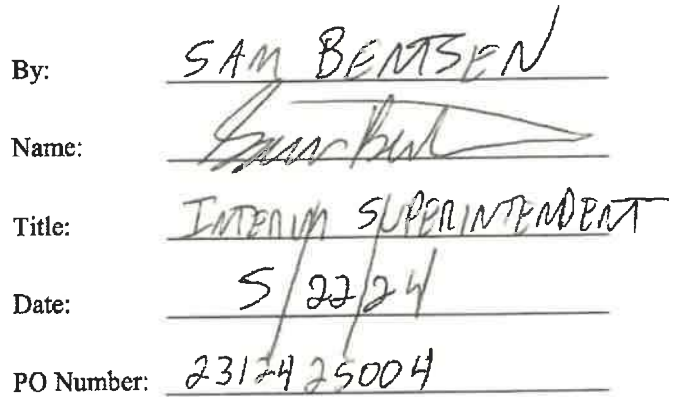 By: SAM BENTSEN
Name: Sam Bent
Title: INTERIM SUPERINTENDENT
Date: 5/22/24
PO Number: 2312425004